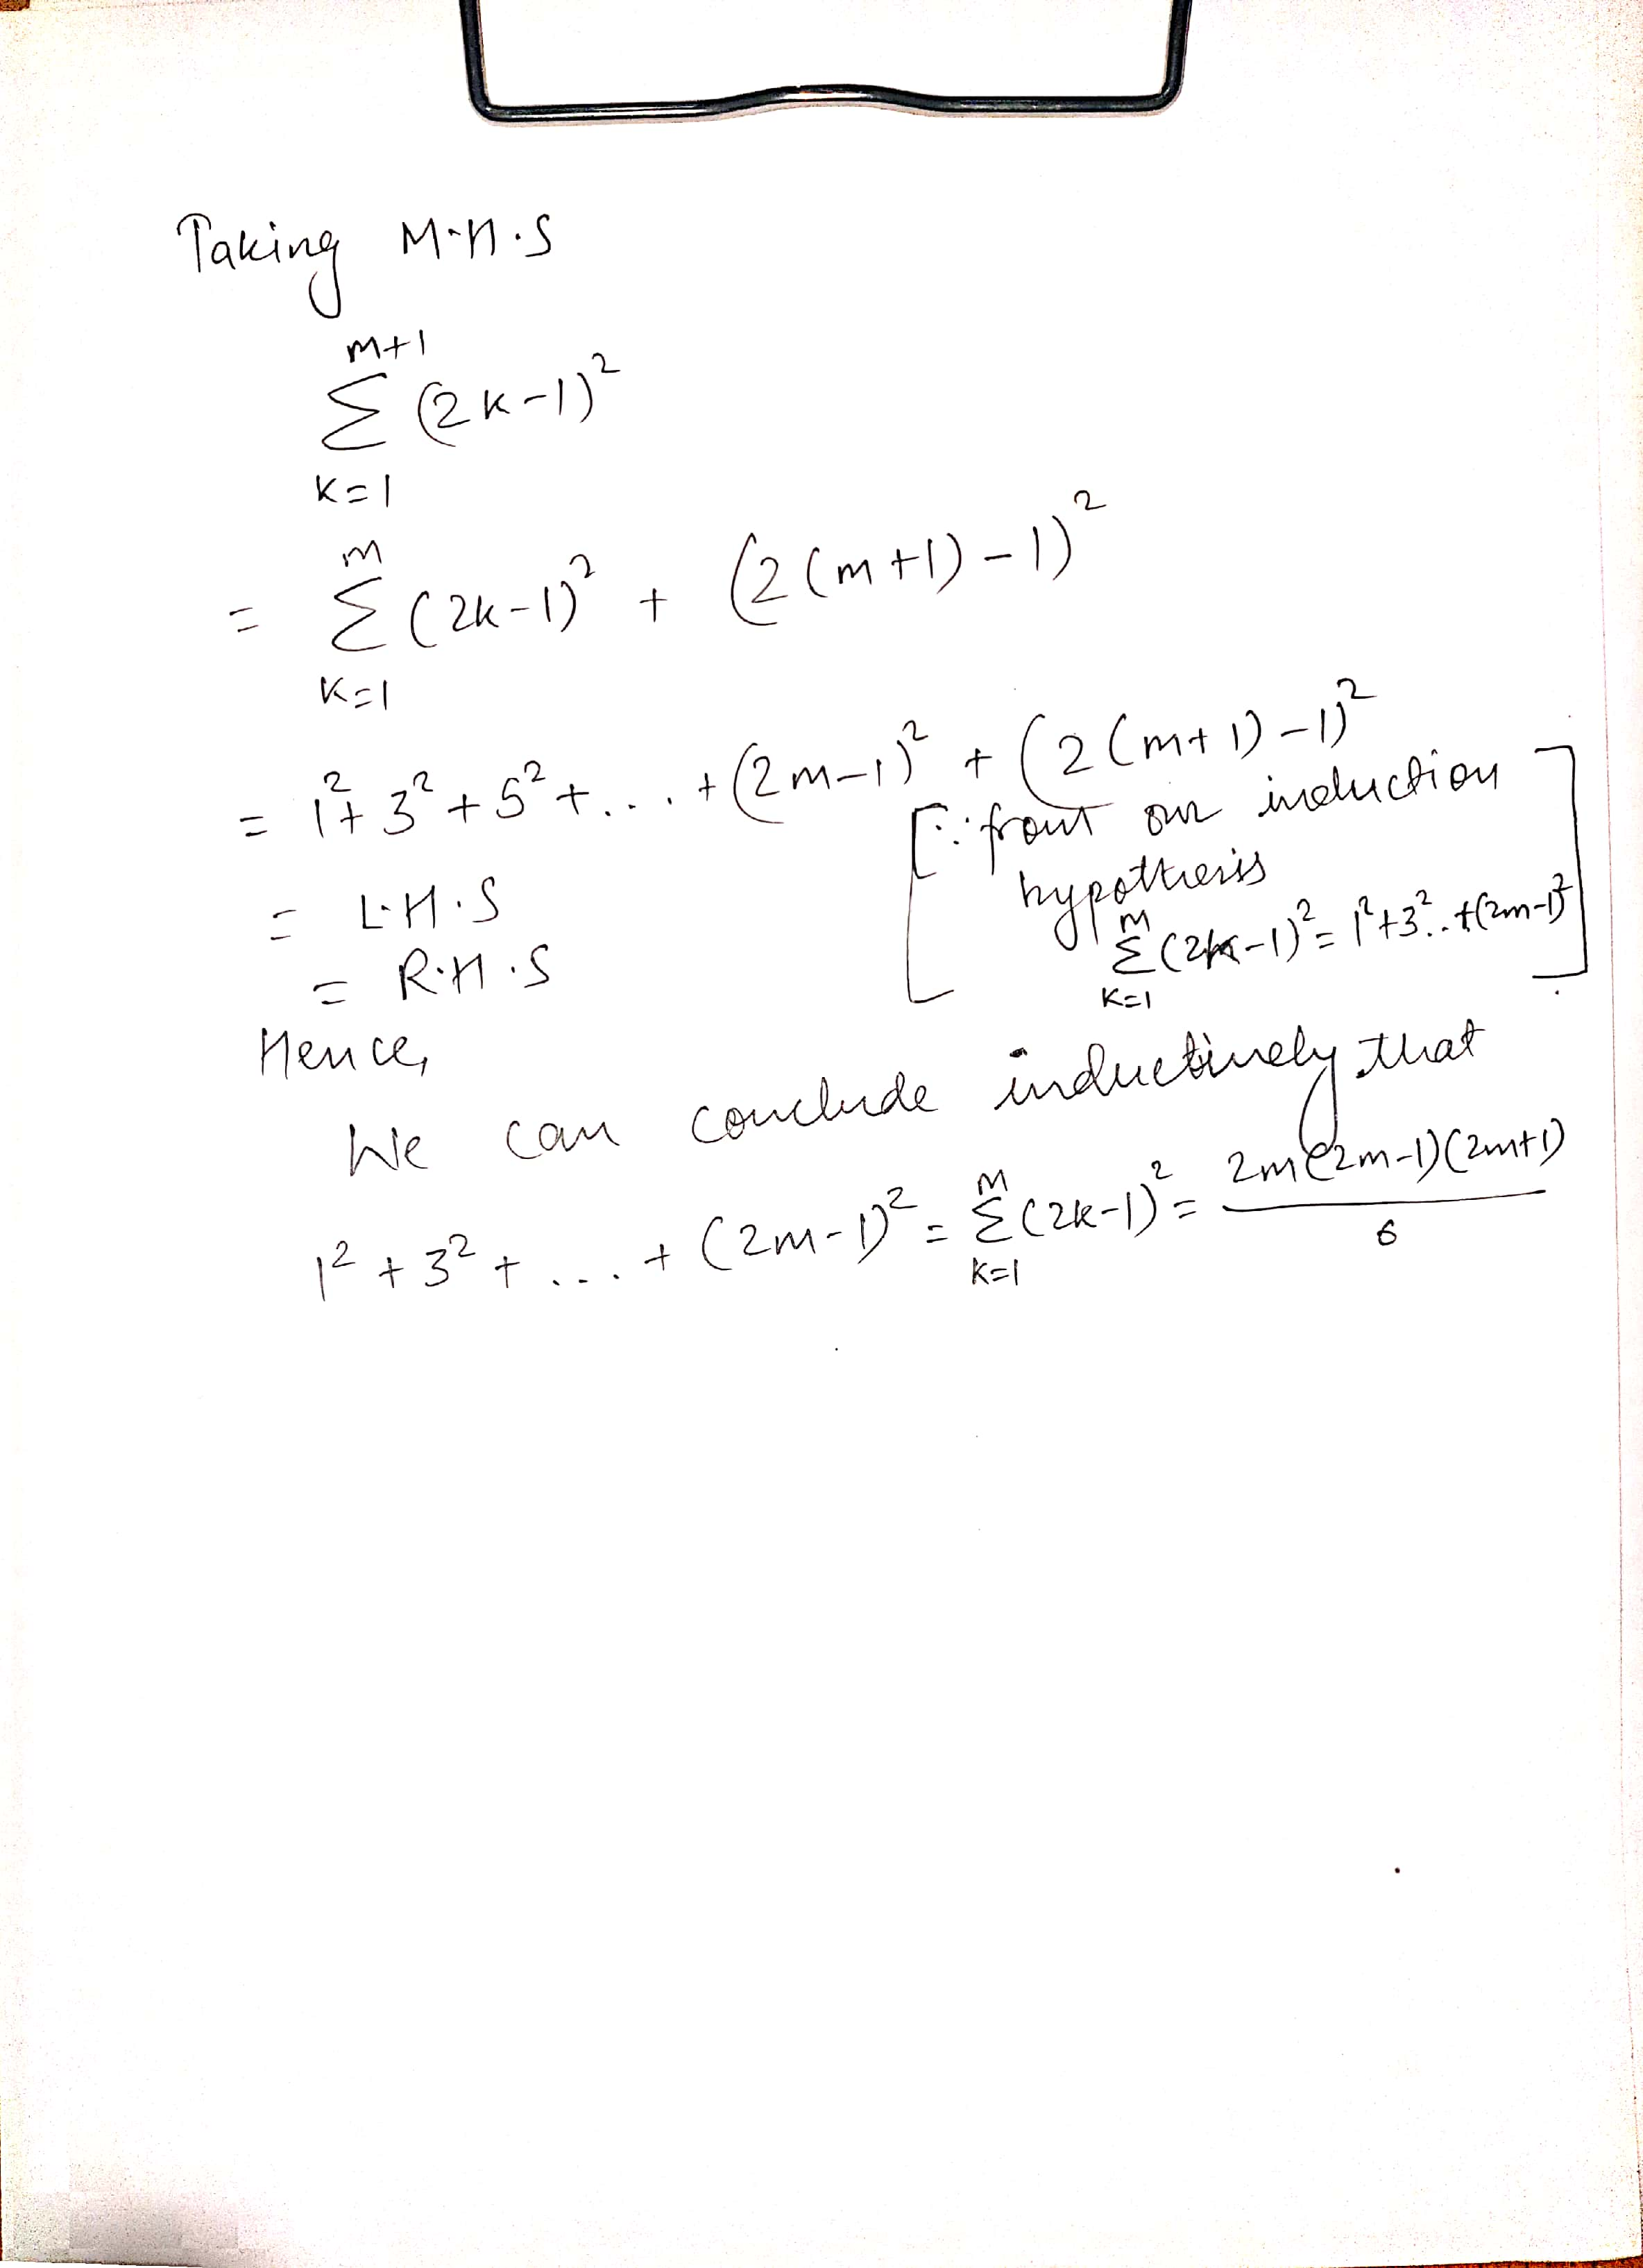 Taking M.H.S
m+1
Σ (2k-1)²
k=1
m
= Σ (2k-1)² + (2(m+1)-1)²
k=1
= 1²+ 3² + 5² + ... + (2m-1)² + (2(m+1)-1)²
[∵ from our induction
hypothesis
m
Σ (2k-1)² = 1²+3²..+(2m-1)²]
k=1
= L.H.S
= R.H.S
Hence,
We can conclude inductively that
1² + 3² + ... + (2m-1)² = m Σ k=1 (2k-1)² = 2m(2m-1)(2m+1) / 6